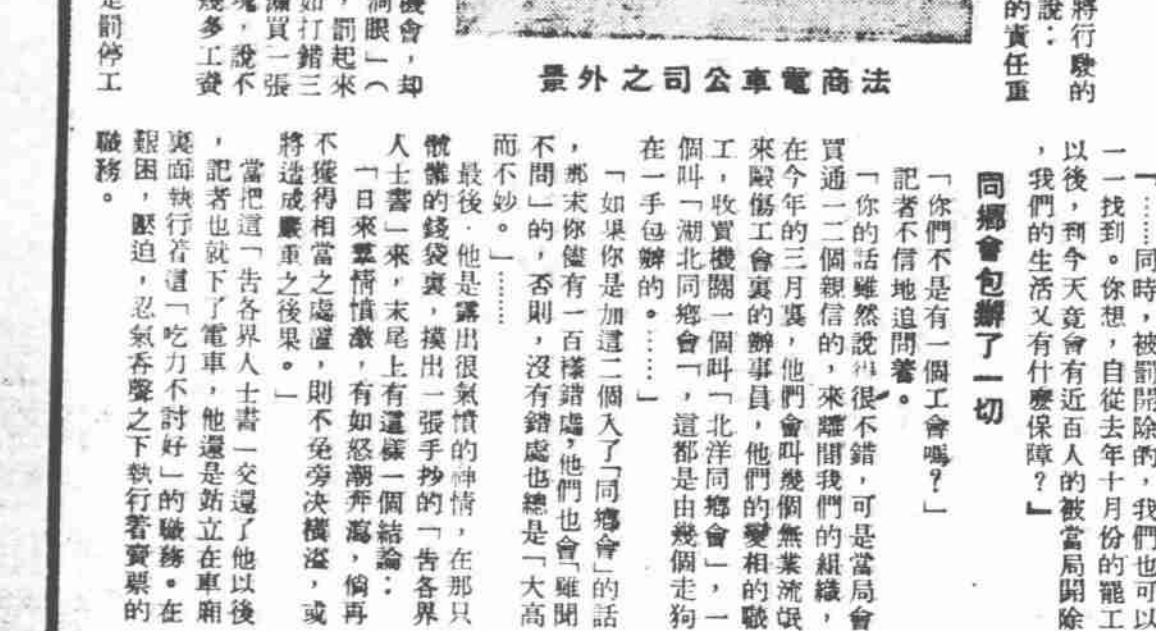 將行駛的
說：
的責任重
機會，却
洞眼」（
，罰起來
如打錯三
買一張
，說不
幾多工資
是罰停工
法商電車公司之外景
「……同時，被罰開除的，我們也可以
一一找到。你想，自從去年十月份的罷工
以後，到今天竟會有近百人的被當局開除
，我們的生活又有什麼保障？」
同鄉會包辦了一切
「你們不是有一個工會嗎？」
記者不信地追問著。
「你的話雖然說得很不錯，可是當局會
買通一二個親信的，來離間我們的組織，
在今年的三月裏，他們會叫幾個無業流氓
來毆傷工會裏的辦事員，他們的變相的職
工，收買機關一個叫「北洋同鄉會」，一
個叫「湖北同鄉會」，這都是由幾個走狗
在一手包辦的。……」
「如果你是加這二個入了「同鄉會」的話
，那末你儘有一百樣錯處，他們也會「雖聞
不問」的，否則，沒有錯處也總是「大高
而不妙。」……
最後．他是露出很氣憤的神情，在那只
骯髒的錢袋裏，摸出一張手抄的「告各界
人士書」來，末尾上有這樣一個結論：
「日來羣情憤激，有如怒潮奔瀉，倘再
不獲得相當之處置，則不免旁决橫溢，或
將造成嚴重之後果。」
當把這「告各界人士書一交還了他以後
，記者也就下了電車，他還是站立在車廂
裏面執行着這「吃力不討好」的職務。在
艱困，壓迫，忍氣吞聲之下執行著賣票的
職務。